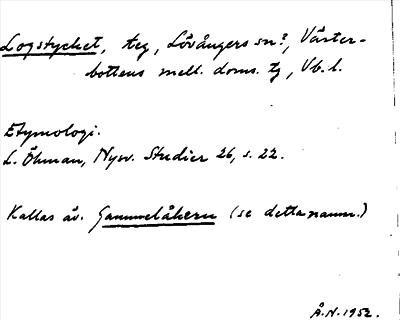 Logstycket, teg, Lövångers sn?, Väster-
bottens mell. doms. tg, Vb. l.
Etymologi.
L. Öhman, Nysv. Studier 26, s. 22.
Kallas äv. Gammelåkern (se detta namn.)
Å.N. 1952.